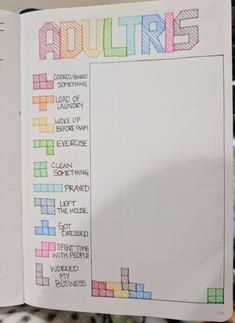 ADULTRIS
COOKED/BAKED
SOMETHING
LOAD OF
LAUNDRY
WOKE UP
BEFORE 9AM
EXERCISE
CLEAN
SOMETHING
PRAYED
LEFT
THE HOUSE
GOT
DRESSED
SPENT TIME
WITH PEOPLE
WORKED
MY
BUSINESS